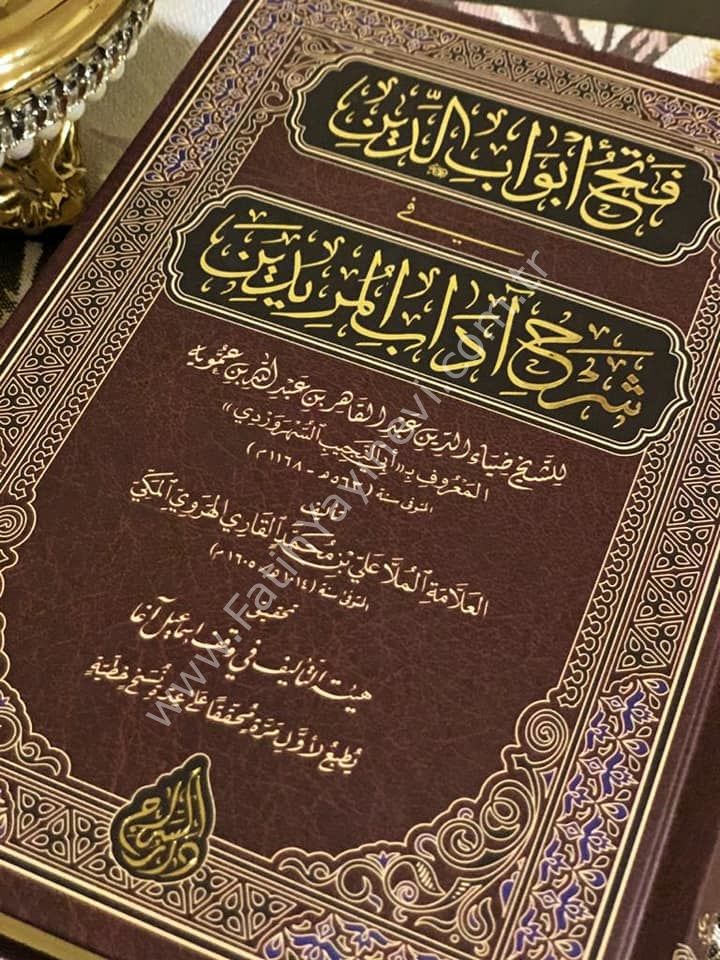 فَتْحُ أَبْوَابِ الدِّينِ
في
شَرْحِ آدَابِ المُرِيدِينَ
للشيخ ضياء الدين عبد القاهر بن عبد الله بن عمويه
المعروف بـ «أبي النجيب السهروردي»
المتوفى سنة هـ - ١١٦٨م)
تأليف
العلامة الملا علي بن محمد القاري الهروي المكي
المتوفى سنة (١٠١٤هـ - ١٦٠٥م)
تحقيق
هيئة التأليف في وقف إسماعيل آغا
يُطبع لأول مرة محققاً على عدة نسخ خطية
دار السلام
www.FatihYayinevi.com.tr